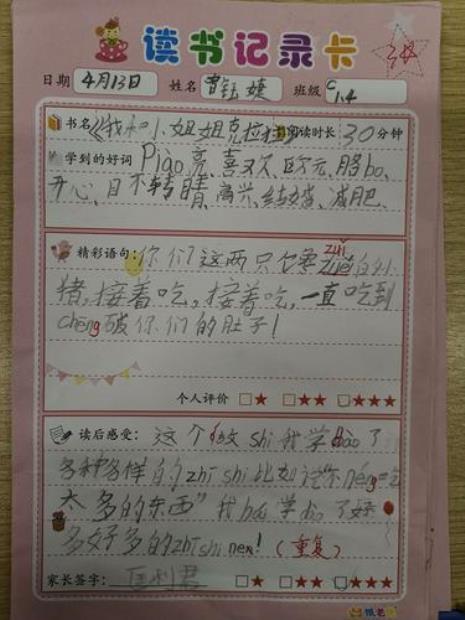 读书记录卡
日期 4月13日 姓名 曾钰婕 班级 1.4
书名《我和小姐姐克拉拉》阅读时长 30分钟
学到的好词 Piào亮、喜欢、欧元、胳bo、
开心、目不转睛、高兴、结婚、减肥、
精彩语句:你们这两只仓零zuǐ的小
猪,接着吃,接着吃,一直吃到
chēng破你们的肚子!
个人评价 □★ □★★ □★★★
读后感受:这个故shi我学dào了
各种各样的zhī shi比如说“不néng吃
太多的东西”我hái学dào了好
多好多的zhī shi nen!(重复)
家长签字: □★ □★★ □★★★